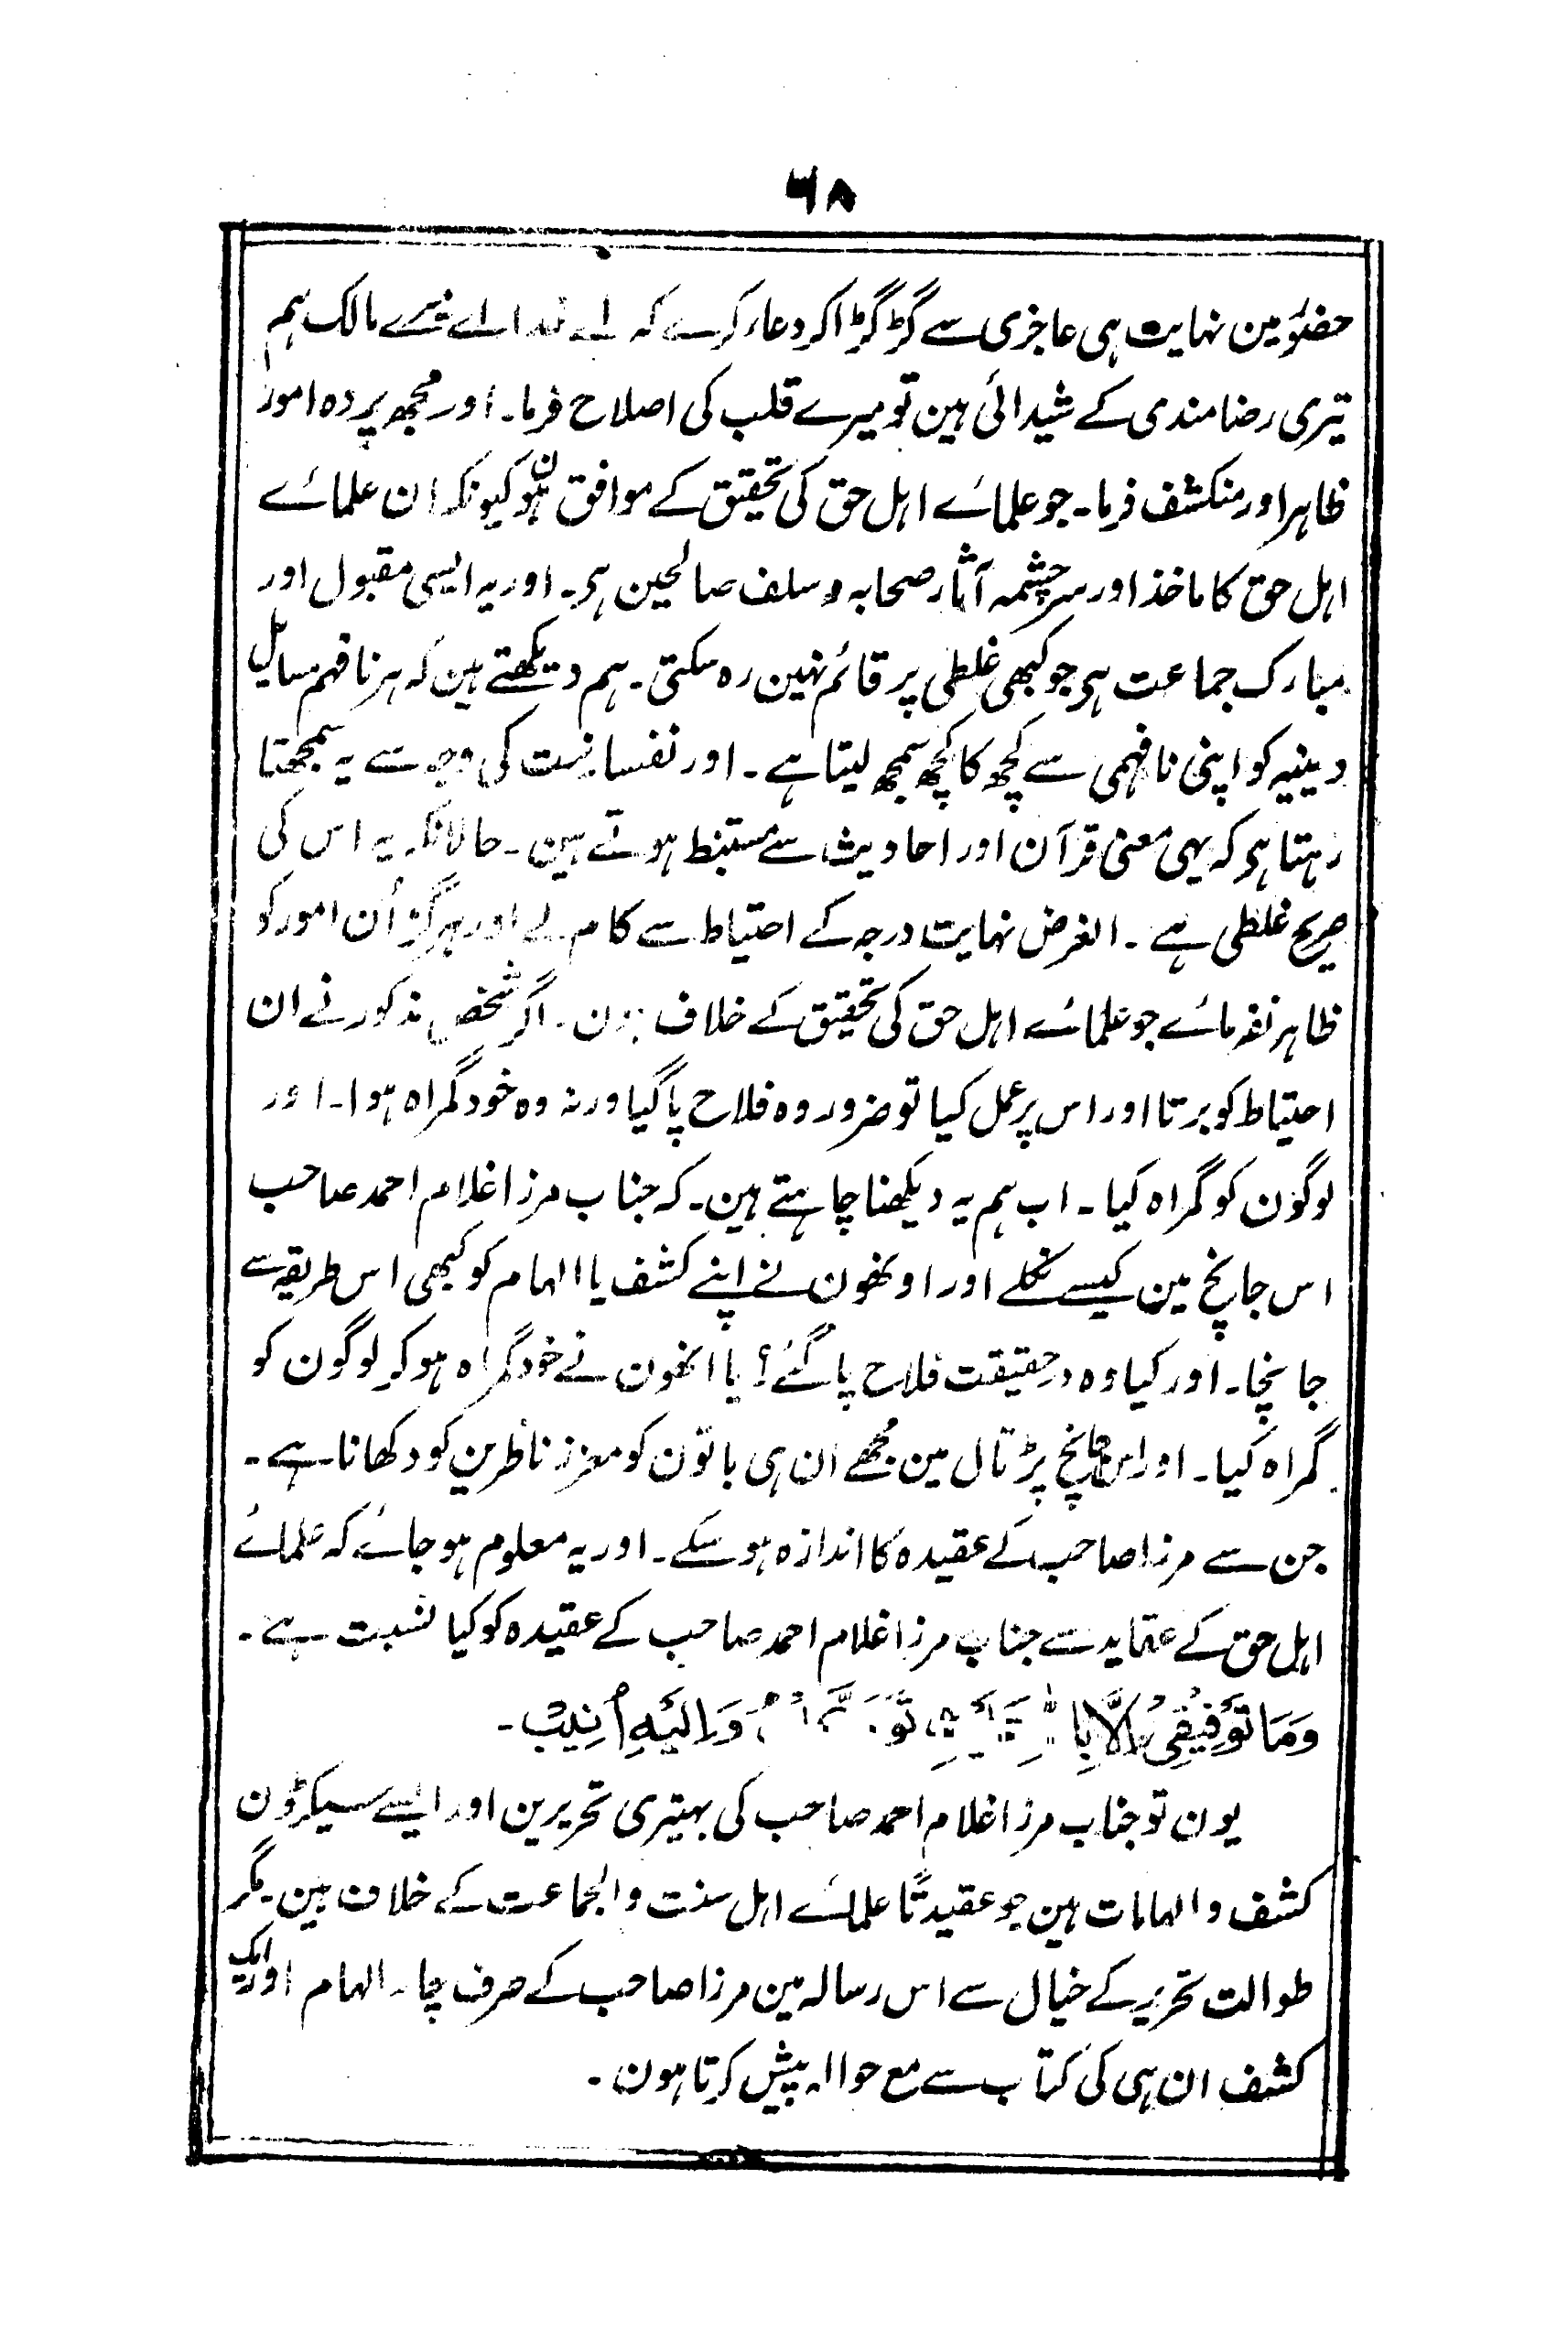 ۶۸
حضور مین نہایت ہی عاجزی سے گڑگڑا کر دعا، کرے کہ اے خدا اے میرے مالک ہم
تیری رضامندی کے شیدائی ہین تو میرے قلب کی اصلاح فرما۔ اور مجھ پر وہ امور
ظاہر اور منکشف فرما۔ جو علمائے اہل حق کی تحقیق کے موافق ہون کیونکہ ان علمائے
اہل حق کا ماخذ اور سرچشمہ آثار صحابہ و سلف صالحین ہی۔ اور یہ ایسی مقبول اور
مبارک جماعت ہی جو کبھی غلطی پر قائم نہین رہ سکتی۔ ہم دیکھتے ہین کہ ہر نافہم مسایل
دینیہ کو اپنی نافہمی سے کچھ کا کچھ سمجھ لیتا ہے۔ اور نفسانیت کی وجہ سے یہ سمجھتا
رہتا ہی کہ یہی معنی قرآن اور احادیث سے مستنبط ہوتے ہین۔ حالانکہ یہ اس کی
صریح غلطی ہے۔ الغرض نہایت درجہ کے احتیاط سے کام لے اور ہرگز اُن امور کو
ظاہر نفرمائے جو علمائے اہل حق کی تحقیق کے خلاف ہون۔ اگر شخص مذکور نے ان
احتیاط کو برتا اور اس پر عمل کیا تو ضرور وہ فلاح پا گیا ورنہ وہ خود گمراہ ہوا۔ اور
لوگون کو گمراہ کیا۔ اب ہم یہ دیکھنا چاہتے ہین۔ کہ جناب مرزا غلام احمد صاحب
اس جانچ مین کیسے نکلے اور اونھون نے اپنے کشف یا الہام کو کبھی اس طریقہ سے
جانچا۔ اور کیا وہ درحقیقت فلاح پا گئے؟ یا انھون نے خود گمراہ ہو کر لوگون کو
گمراہ کیا۔ اور اس جانچ پڑتال مین مجھے ان ہی باتون کو معزز ناظرین کو دکھانا ہے۔
جن سے مرزا صاحب کے عقیدہ کا اندازہ ہو سکے۔ اور یہ معلوم ہو جائے کہ علمائے
اہل حق کے عقاید سے جناب مرزا غلام احمد صاحب کے عقیدہ کو کیا نسبت ہے۔
وَمَا تَوْفِيْقِيْ اِلَّا بِاللّٰهِ عَلَيْهِ تَوَكَّلْتُ وَاِلَيْهِ اُنِيْبُ۔
یون تو جناب مرزا غلام احمد صاحب کی بہتیری تحریرین اور ایسے سیکڑون
کشف و الہامات ہین جو عقیدتًا علمائے اہل سنت والجماعت کے خلاف ہین۔ مگر
طوالت تحریر کے خیال سے اس رسالہ مین مرزا صاحب کے صرف چار الہام اور ایک
کشف ان ہی کی کتاب سے مع حوالہ پیش کرتا ہون۔